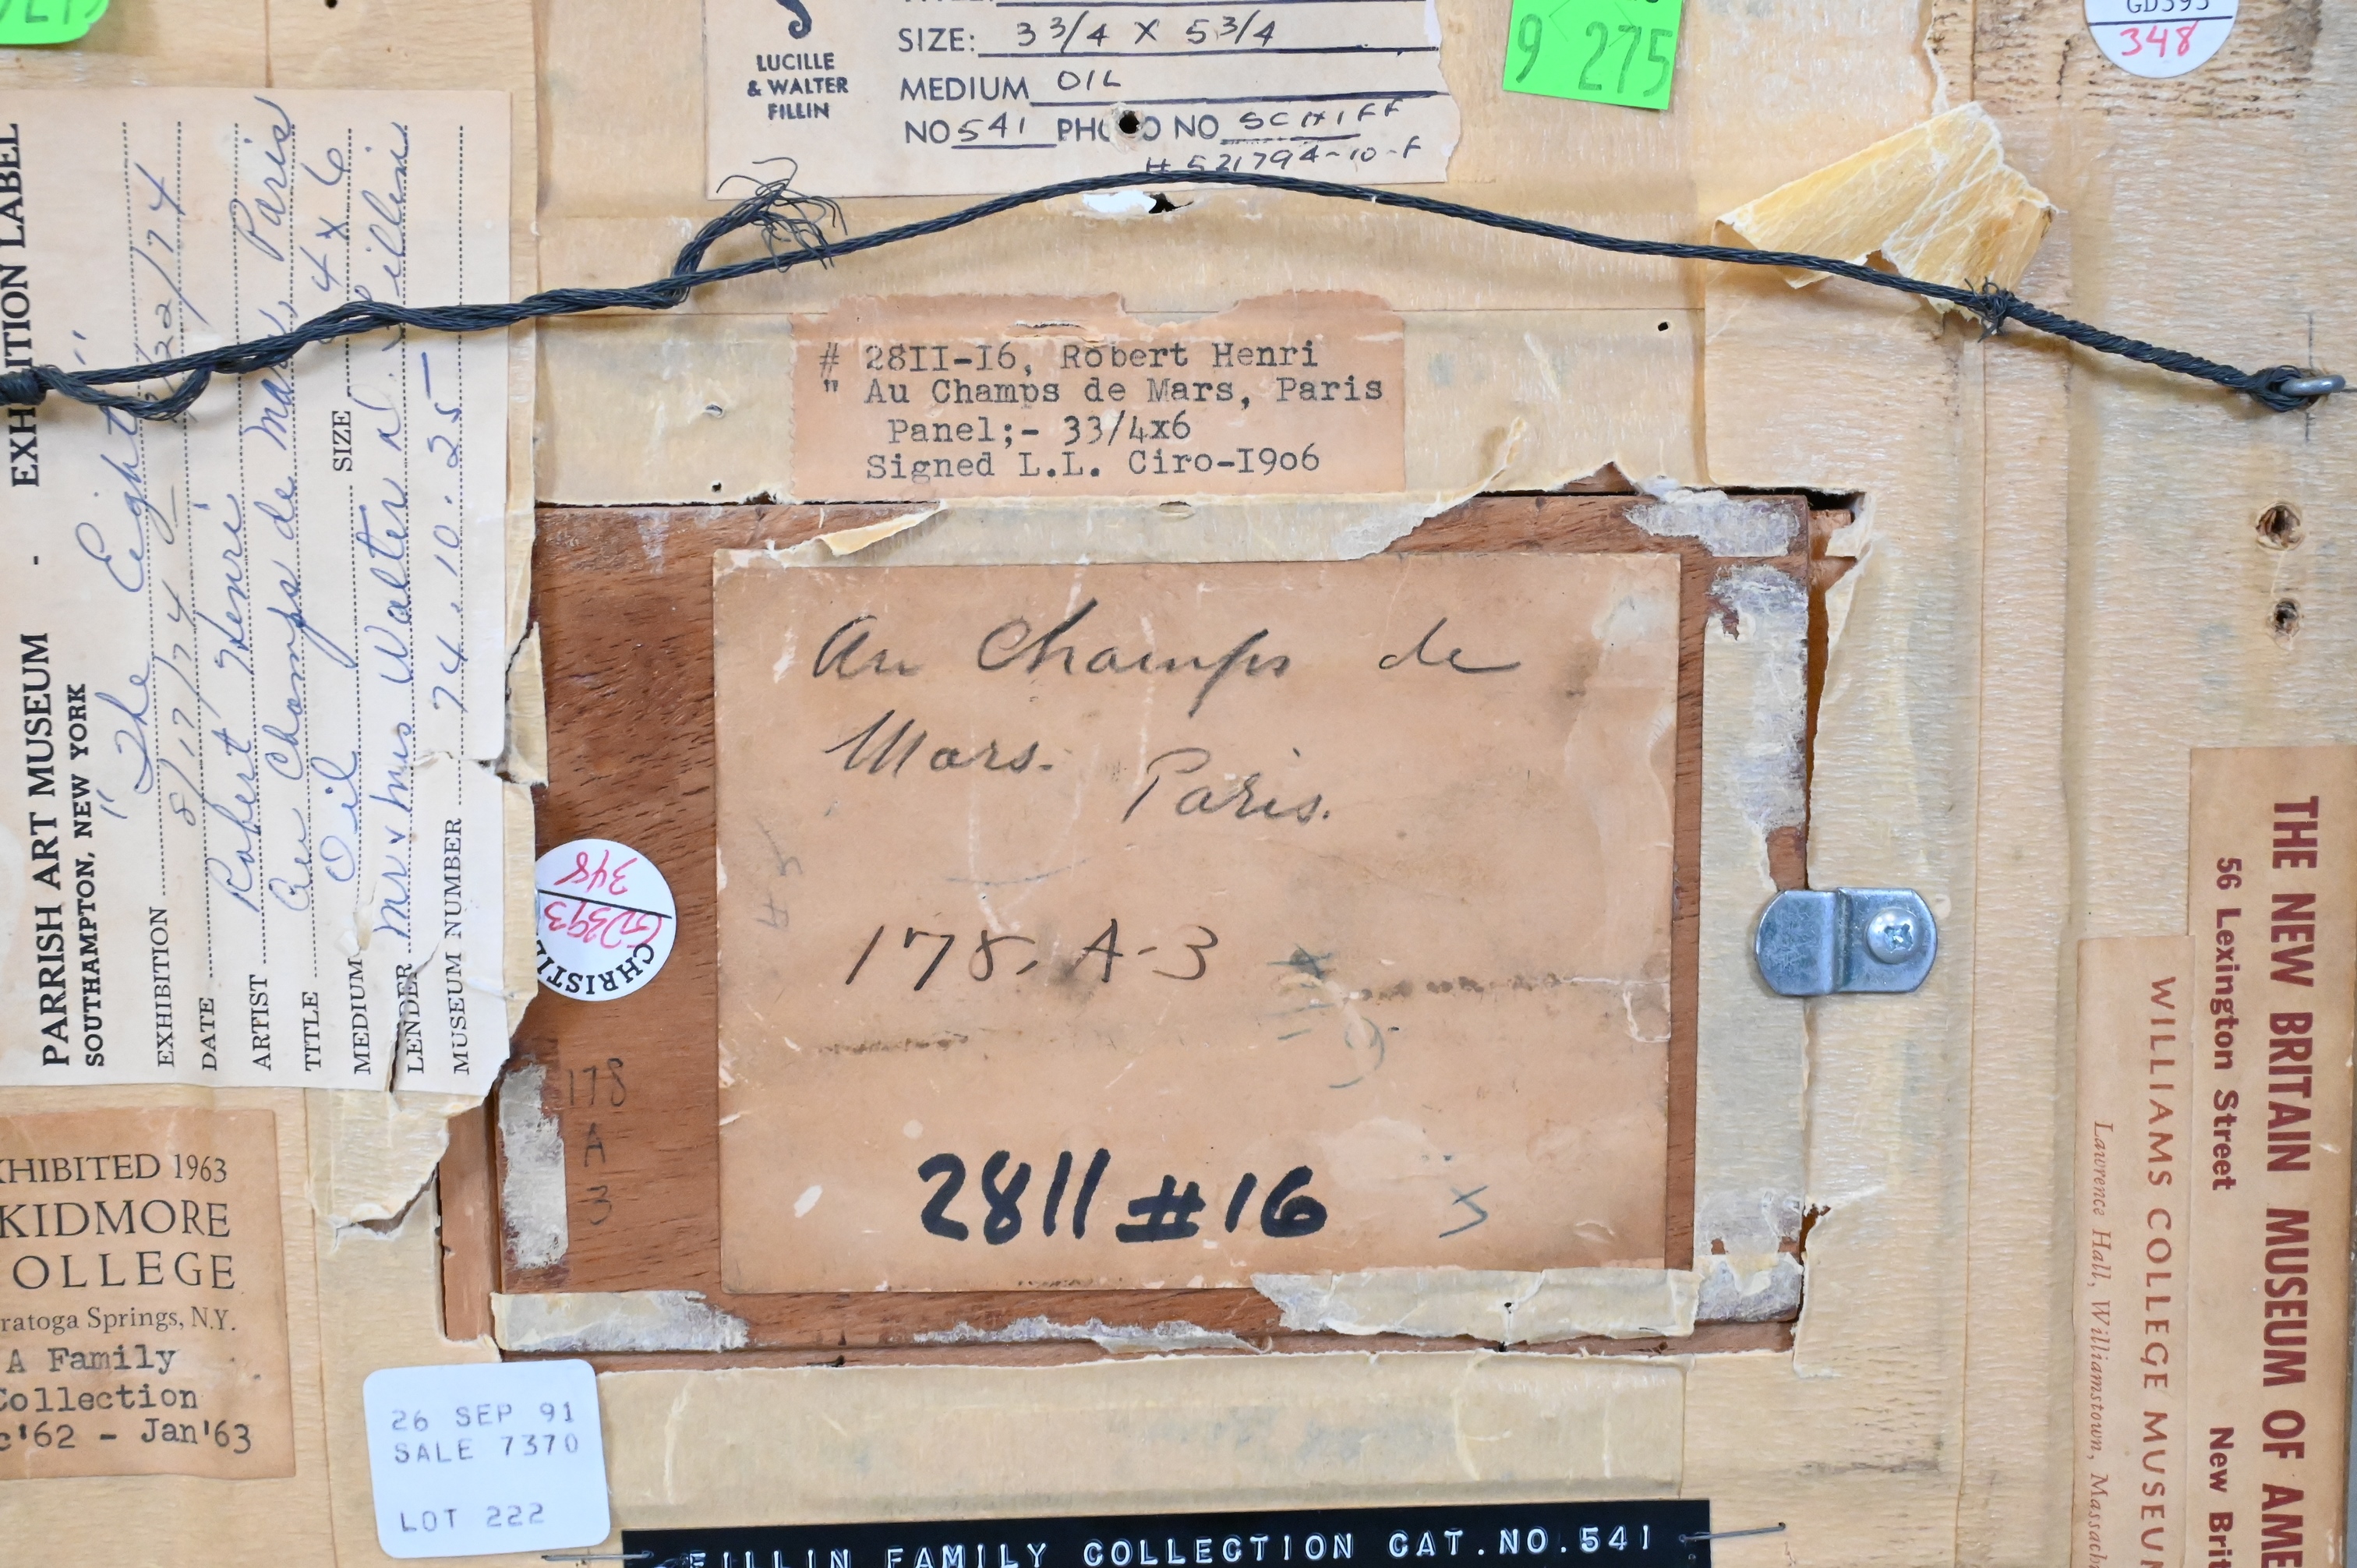 SIZE: 3 3/4 X 5 3/4
LUCILLE
& WALTER
FILLIN
MEDIUM OIL
NO 541 PHOTO NO SCHIFF
# 521794-10-F
9 275
GD393
348
PARRISH ART MUSEUM - EXHIBITION LABEL
SOUTHAMPTON, NEW YORK
EXHIBITION "The Eight"
DATE 8/17/74 - 9/22/74
ARTIST Robert Henri
TITLE Au Champs de Mars, Paris
MEDIUM Oil SIZE 4 x 6
LENDER Mr & Mrs Walter Fillin
MUSEUM NUMBER 74.10.25
# 28II-I6, Robert Henri
" Au Champs de Mars, Paris
Panel;- 33/4x6
Signed L.L. Ciro-I906
Au Champs de
Mars. Paris.
178. A-3
2811 #16
348
GD393
CHRISTIE
178
A
3
EXHIBITED 1963
SKIDMORE
COLLEGE
ratoga Springs, N.Y.
A Family
Collection
c'62 - Jan'63
26 SEP 91
SALE 7370
LOT 222
FILLIN FAMILY COLLECTION CAT.NO.541
THE NEW BRITAIN MUSEUM OF AME
56 Lexington Street New Bri
WILLIAMS COLLEGE MUSEUM
Lawrence Hall, Williamstown, Massach